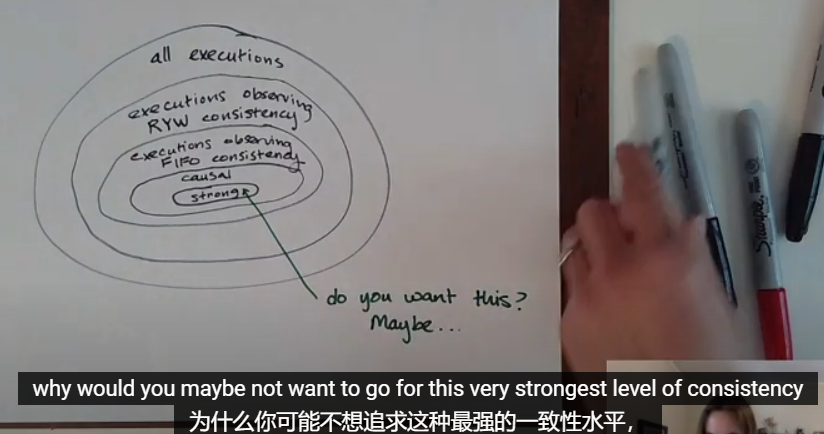 all executions
executions observing
RYW consistency
executions observing
FIFO consistency
causal
strong
do you want this?
Maybe...
Sharpie
why would you maybe not want to go for this very strongest level of consistency
为什么你可能不想追求这种最强的一致性水平，